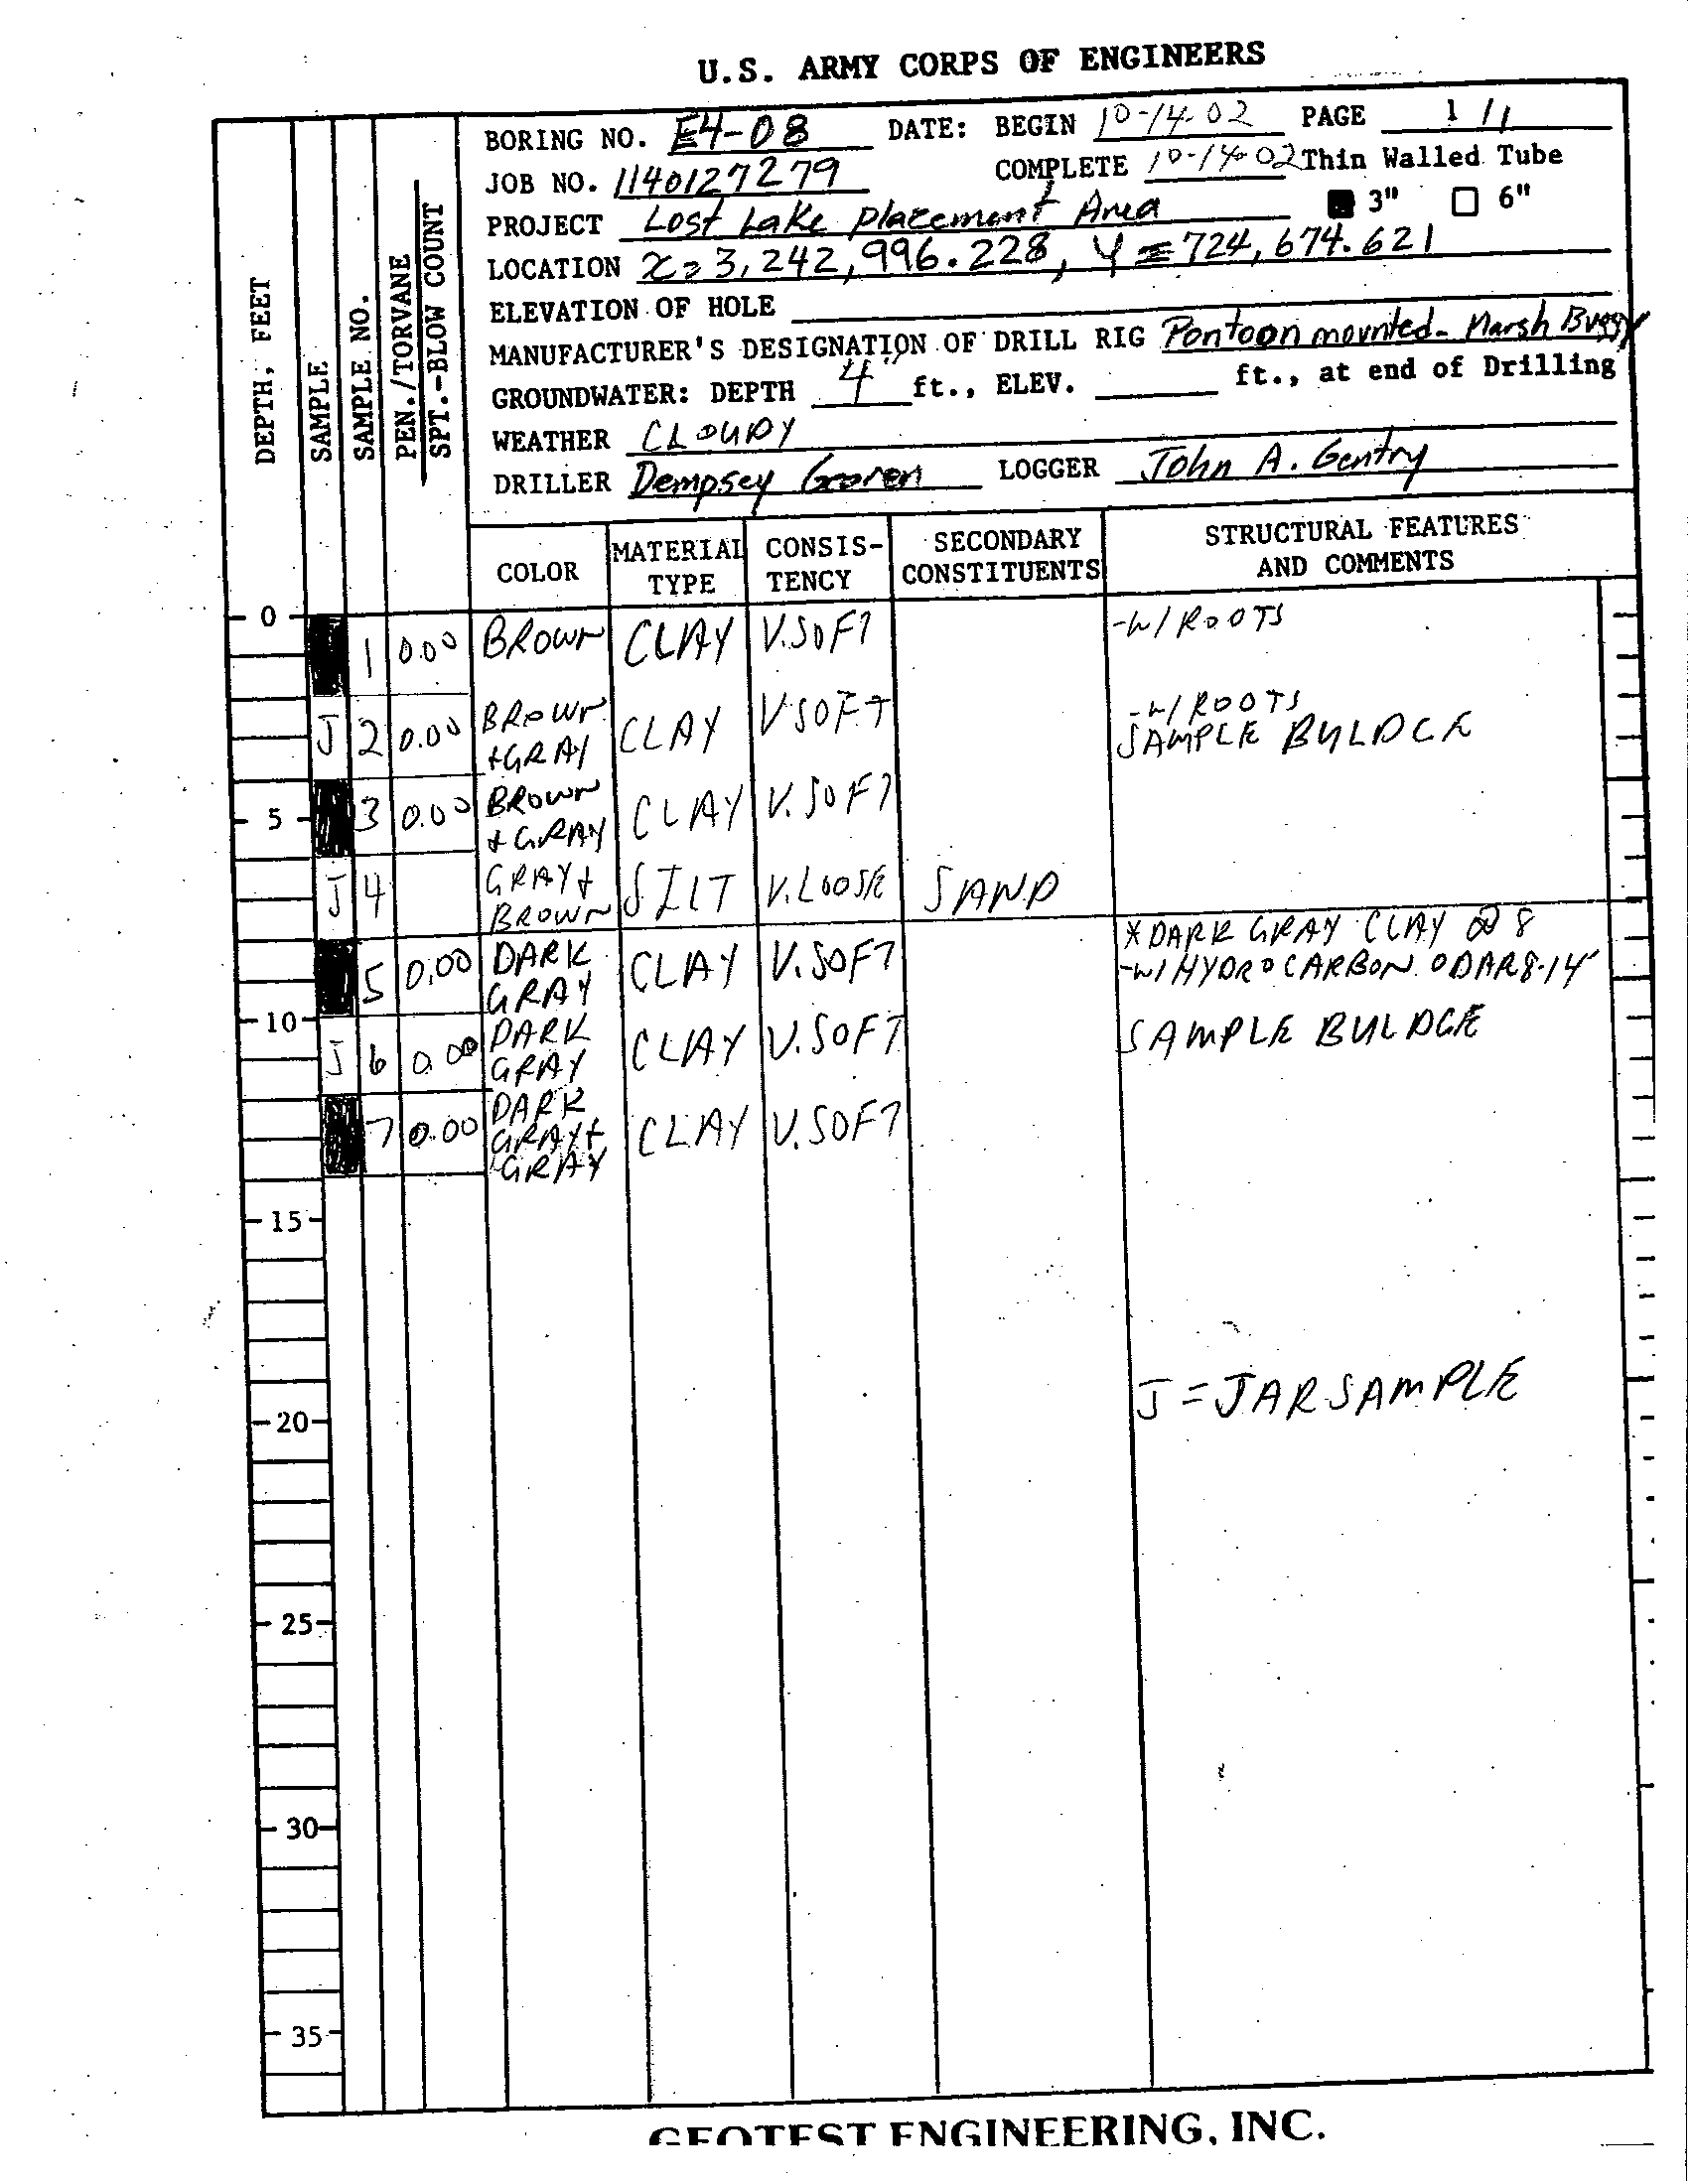 U.S. ARMY CORPS OF ENGINEERS
BORING NO. E4-08 DATE: BEGIN 10-14-02 PAGE 1 / 1
JOB NO. 1140127279 COMPLETE 10-14-02 Thin Walled Tube
PROJECT Lost Lake Placement Area 3" 6"
LOCATION x = 3,242,996.228, Y = 724,674.621
ELEVATION OF HOLE
MANUFACTURER'S DESIGNATION OF DRILL RIG Pontoon mounted- Marsh Buggy
GROUNDWATER: DEPTH 4" ft., ELEV. ft., at end of Drilling
WEATHER CLOUDY
DRILLER Dempsey LOGGER John A. Gentry
DEPTH, FEET
SAMPLE
SAMPLE NO.
PEN./TORVANE
SPT.-BLOW COUNT
COLOR MATERIAL TYPE CONSIS-TENCY SECONDARY CONSTITUENTS STRUCTURAL FEATURES AND COMMENTS
0
1 0.00 BROWN CLAY V.SOFT -W/ROOTS
J 2 0.00 BROWN +GRAY CLAY V SOFT -W/ROOTS
SAMPLE BULDGE
5
3 0.00 BROWN + GRAY CLAY V.SOFT
J 4 GRAY + BROWN SILT V.LOOSE SAND
*DARK GRAY CLAY @ 8
5 0.00 DARK GRAY CLAY V.SOFT -W/HYDROCARBON ODAR 8-14'
10
J 6 0.00 DARK GRAY CLAY V.SOFT SAMPLE BULDGE
7 0.00 DARK GRAY + GRAY CLAY V.SOFT
15
J = JAR SAMPLE
20
25
30
35
GEOTEST ENGINEERING, INC.